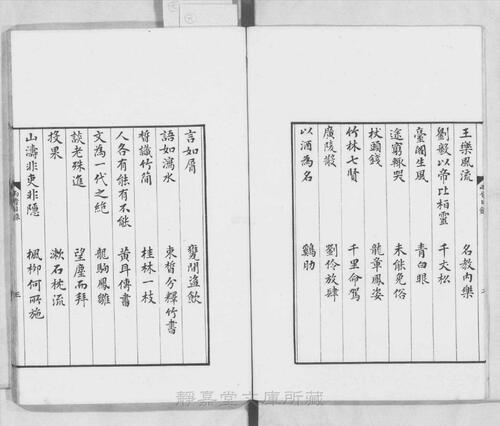 王樂風流　名教內樂
劉毅以帝比桓靈　千丈松
臺閣生風　青白眼
途窮輒哭　未能免俗
杖頭錢　龍章鳳姿
竹林七賢　千里命駕
廣陵散　劉伶放肆
以酒為名　鷄肋
二
言如屑　甕間盜飲
語如瀉水　束晳分釋竹書
晳識竹簡　桂林一枝
人各有能有不能　黃耳傳書
文為一代之絕　龍駒鳳雛
談老殊進　望塵而拜
投果　漱石枕流
山濤非吏非隱　楓柳何所施
三
靜嘉堂文庫所藏